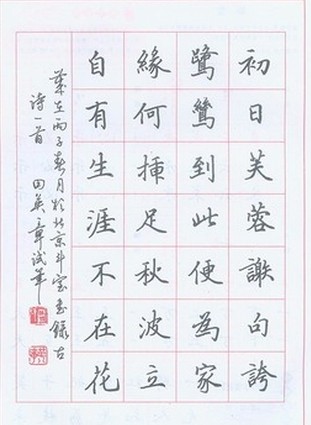 初日芙蓉謝句誇
鷺鷥到此便為家
緣何揷足秋波立
自有生涯不在花
歲在丙子春月於北京斗室書錄古
诗一首 田英章試筆